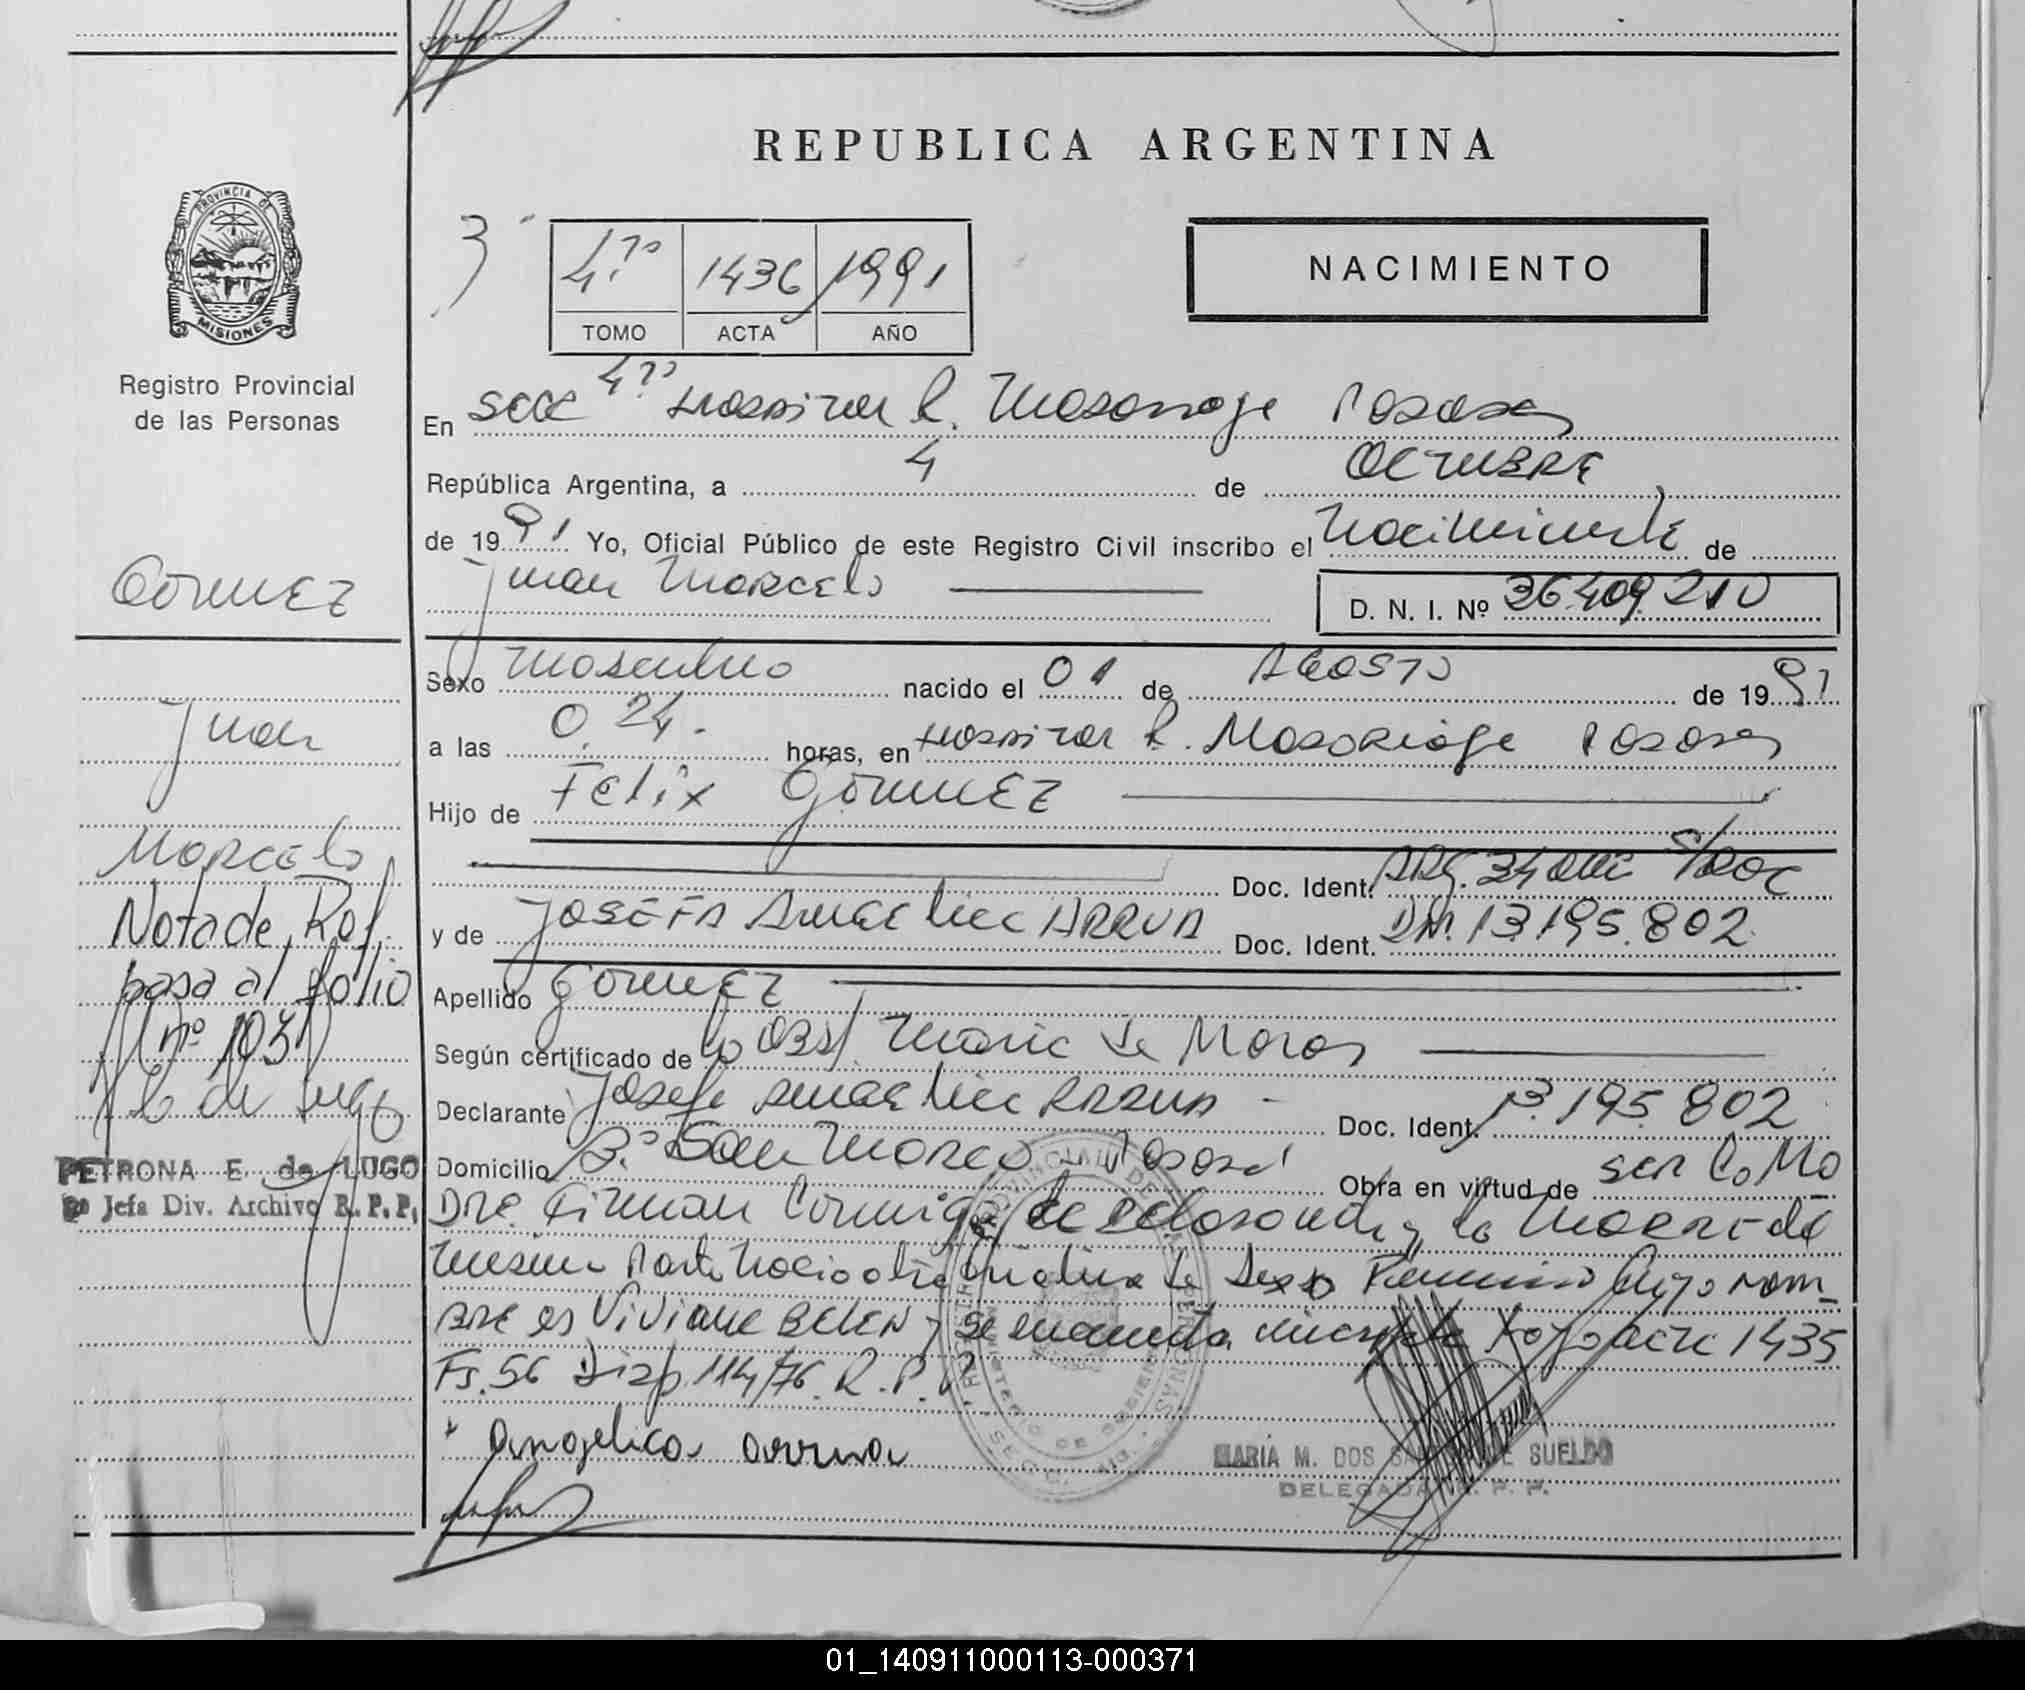 REPUBLICA ARGENTINA
PROVINCIA DE
MISIONES
Registro Provincial
de las Personas
3
4º 1436 1991
TOMO ACTA AÑO
NACIMIENTO
En Secc 4º Hospital R. Madariaga Posadas
República Argentina, a 4 de OCTUBRE
de 1991 Yo, Oficial Público de este Registro Civil inscribo el Nacimiento de
Juan Marcelo
D. N. I. Nº 36.409.210
Sexo Masculino nacido el 01 de AGOSTO de 1991
a las 0.24 horas, en Hospital R. Madariaga Posadas
Hijo de Felix GómEZ
Doc. Ident. ARG. 34 s/Doc
y de JOSEFA Angelica ARRUA Doc. Ident. DNI. 13.195.802
Apellido GómEZ
Según certificado de la Obst. Maria de Moras
Declarante Josefa Angelica ARRUA Doc. Ident. 13.195.802
Domicilio Bº San Marco - Posadas Obra en virtud de ser la Ma
dre. Firman Conmigo la declarante y la Madre del
mismo Parto Nacio otra criatura de Sexo Femenino Cuyo nom_
bre es Viviana BELEN y se encuentra inscripta bajo acta 1435
Fs. 56 Disp. 114/76. R. P. P.
Angelica arrua
MARIA M. DOS SUELDO
DELEGADA R. P. P.
GómEZ
Juan
Marcelo
Nota de Ref.
pasa al folio
nº 103
PETRONA E. de LUGO
Jefa Div. Archivo R. P. P.
01_140911000113-000371